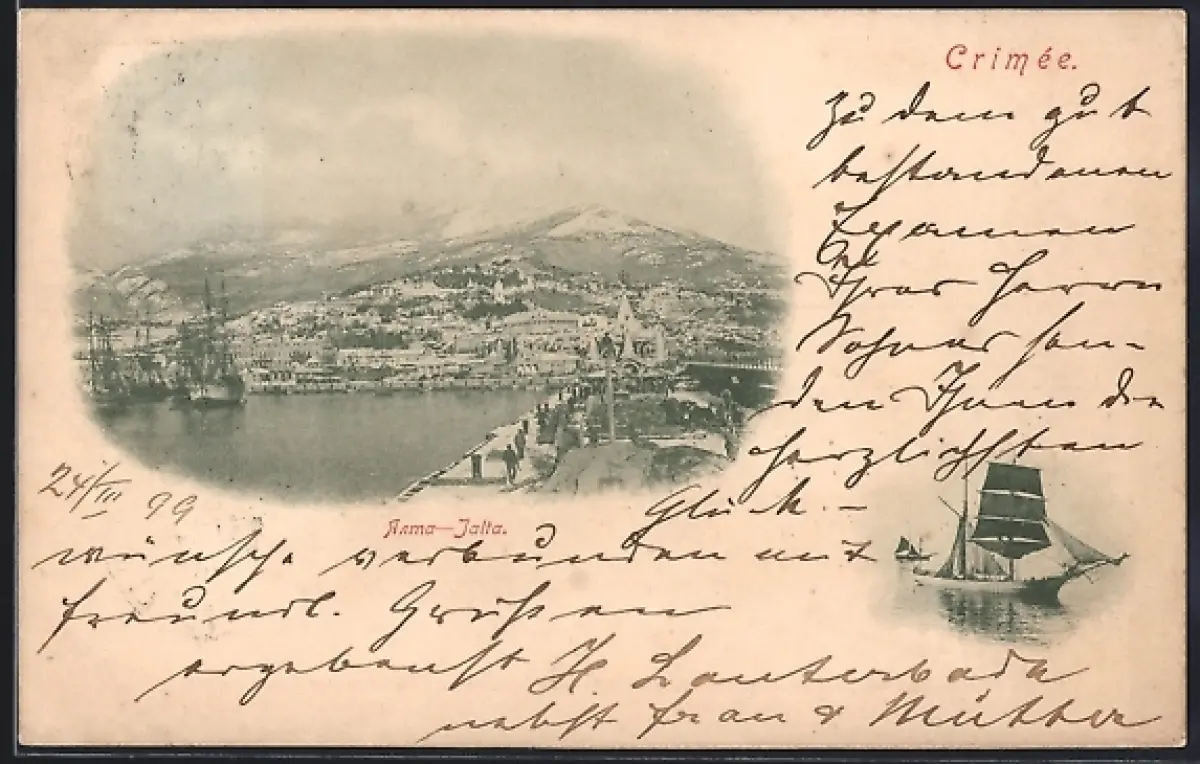 Crimée.
Zu dem gut
bestandenen
Examen
Ihres Herrn
Sohnes sen-
den Ihnen die
herzlichsten
Glück-
24/III 99
Ялта—Jalta.
wünsche verbunden mit
freundl. Grüßen
ergebenst H. Lauterbach
nebst Frau & Mutter